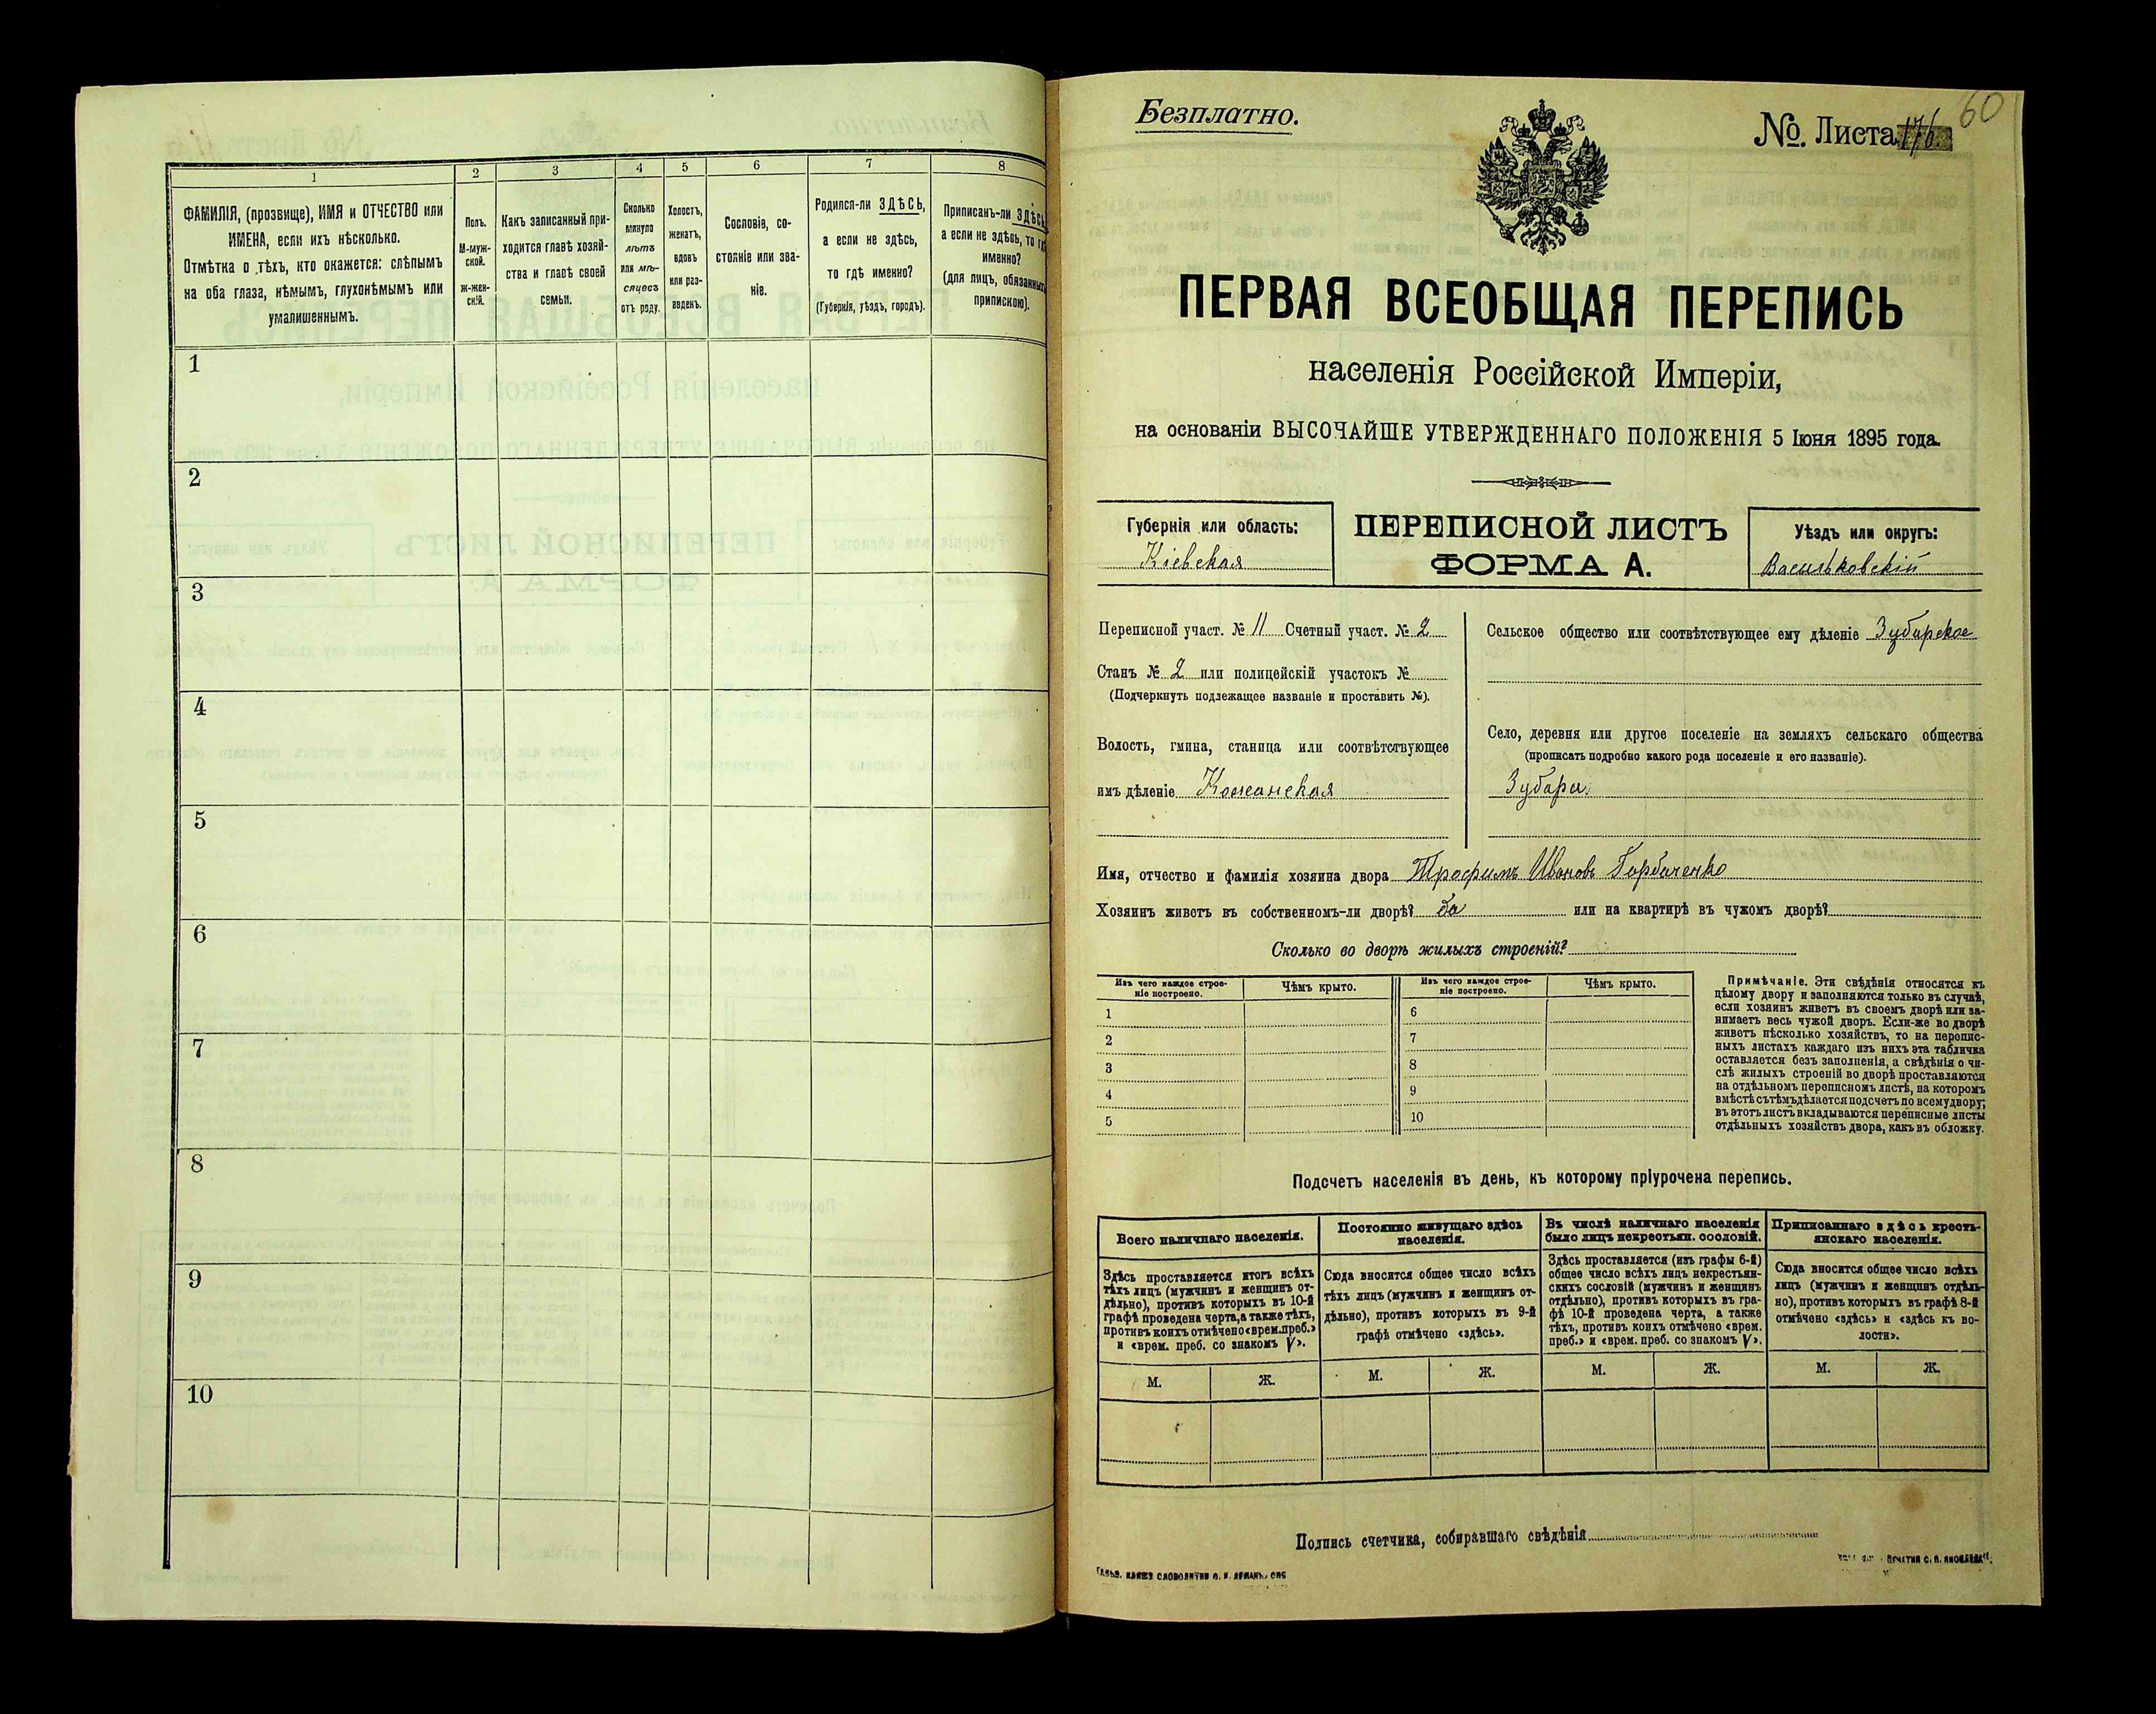 1
2
3
4
5
6
7
8
ФАМИЛІЯ, (прозвище), ИМЯ и ОТЧЕСТВО или
ИМЕНА, если ихъ нѣсколько.
Отмѣтка о тѣхъ, кто окажется: слѣпымъ
на оба глаза, нѣмымъ, глухонѣмымъ или
умалишеннымъ.
Полъ.
М-муж-
ской.
ж-жен-
скій.
Какъ записанный при-
ходится главѣ хозяй-
ства и главѣ своей
семьи.
Сколько
минуло
лѣтъ
или мѣ-
сяцевъ
отъ роду.
Холостъ,
женатъ,
вдовъ
или раз-
веденъ.
Сословіе, со-
стояніе или зва-
ніе.
Родился-ли ЗДѢСЬ,
а если не здѣсь,
то гдѣ именно?
(Губернія, уѣздъ, городъ).
Приписанъ-ли ЗДѢСЬ,
а если не здѣсь, то гдѣ
именно?
(для лицъ, обязанныхъ
припискою).
1
2
3
4
5
6
7
8
9
10
60
Безплатно.
№. Листа 176
ПЕРВАЯ ВСЕОБЩАЯ ПЕРЕПИСЬ
населенія Россійской Имперіи,
на основаніи ВЫСОЧАЙШЕ УТВЕРЖДЕННАГО ПОЛОЖЕНІЯ 5 Іюня 1895 года.
Губернія или область:
Кіевская
ПЕРЕПИСНОЙ ЛИСТЪ
ФОРМА А.
Уѣздъ или округъ:
Васильковскій
Переписной участ. № 11 Счетный участ. № 2
Станъ № 2 или полицейскій участокъ №
(Подчеркнуть подлежащее названіе и проставить №).
Волость, гмина, станица или соотвѣтствующее
имъ дѣленіе Кожанская
Сельское общество или соотвѣтствующее ему дѣленіе Зубарское
Село, деревня или другое поселеніе на земляхъ сельскаго общества
(прописать подробно какого рода поселеніе и его названіе).
Зубари.
Имя, отчество и фамилія хозяина двора Трофимъ Ивановъ Горбаченко
Хозяинъ живетъ въ собственномъ-ли дворѣ? да или на квартирѣ въ чужомъ дворѣ?
Сколько во дворѣ жилыхъ строеній?
Изъ чего каждое строе-
ніе построено.
Чѣмъ крыто.
Изъ чего каждое строе-
ніе построено.
Чѣмъ крыто.
1
2
3
4
5
6
7
8
9
10
Примѣчаніе. Эти свѣдѣнія относятся къ
цѣлому двору и заполняются только въ случаѣ,
если хозяинъ живетъ въ своемъ дворѣ или за-
нимаетъ весь чужой дворъ. Если-же во дворѣ
живетъ нѣсколько хозяйствъ, то на перепис-
ныхъ листахъ каждаго изъ нихъ эта табличка
оставляется безъ заполненія, а свѣдѣнія о чи-
слѣ жилыхъ строеній во дворѣ проставляются
на отдѣльномъ переписномъ листѣ, на которомъ
вмѣстѣ съ тѣмъ дѣлается подсчетъ по всему двору;
въ этотъ листъ вкладываются переписные листы
отдѣльныхъ хозяйствъ двора, какъ въ обложку.
Подсчетъ населенія въ день, къ которому пріурочена перепись.
Всего наличнаго населенія.
Здѣсь проставляется итогъ всѣхъ
тѣхъ лицъ (мужчинъ и женщинъ от-
дѣльно), противъ которыхъ въ 10-й
графѣ проведена черта, а также тѣхъ,
противъ коихъ отмѣчено «врем. преб.»
и «врем. преб. со знакомъ V».
М. Ж.
Постоянно живущаго здѣсь
населенія.
Сюда вносится общее число всѣхъ
тѣхъ лицъ (мужчинъ и женщинъ от-
дѣльно), противъ которыхъ въ 9-й
графѣ отмѣчено «здѣсь».
М. Ж.
Въ числѣ наличнаго населенія
было лицъ некрестьян. сословій.
Здѣсь проставляется (изъ графы 6-й)
общее число всѣхъ лицъ некрестьян-
скихъ сословій (мужчинъ и женщинъ
отдѣльно), противъ которыхъ въ гра-
фѣ 10-й проведена черта, а также
тѣхъ, противъ коихъ отмѣчено «врем.
преб.» и «врем. преб. со знакомъ V».
М. Ж.
Приписаннаго здѣсь кресть-
янскаго населенія.
Сюда вносится общее число всѣхъ
лицъ (мужчинъ и женщинъ отдѣль-
но), противъ которыхъ въ графѣ 8-й
отмѣчено «здѣсь» и «здѣсь къ во-
лости».
М. Ж.
Подпись счетчика, собиравшаго свѣдѣнія